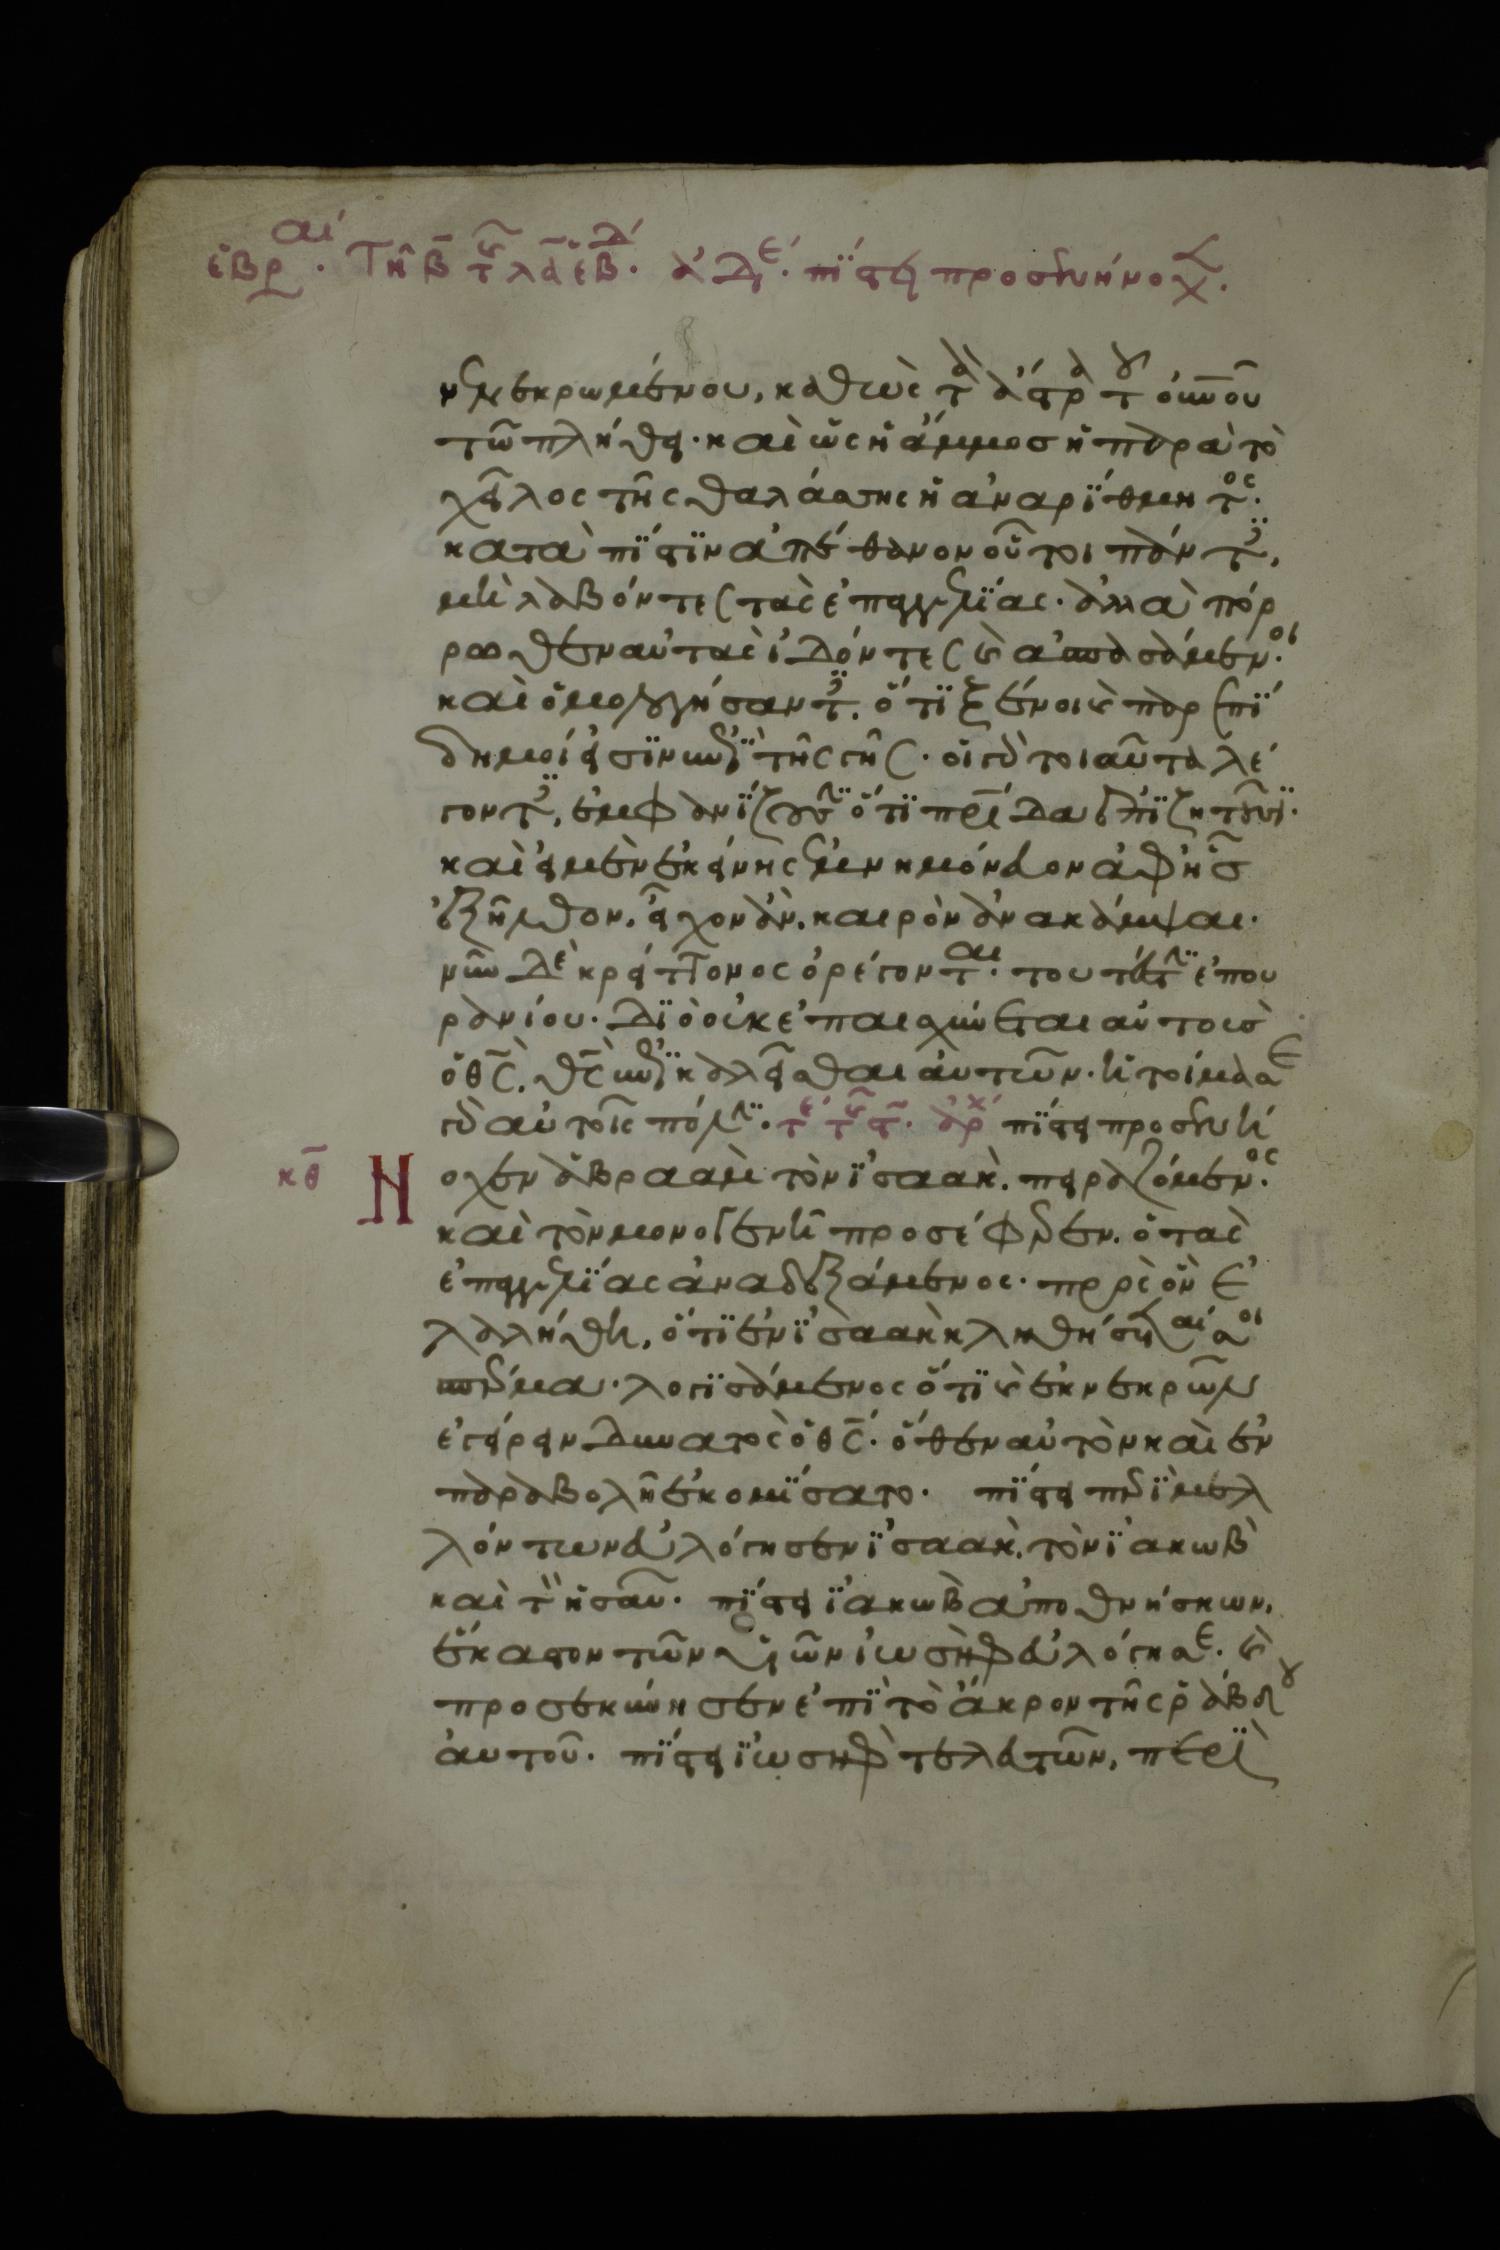 ἑβραί. Τῇ β̄ τῆς λ̄ᾱ ἑβδ. ἀδε. πίστει προσενήνοχ.
νενεκρωμένου, καθὼς τὰ ἄστρα τοῦ οὐνοῦ
τῶ πλήθει. καὶ ὡς ἡ ἄμμος ἡ παρὰ τὸ
χεῖλος τῆς θαλάσσης ἡ ἀναρίθμητος.
κατὰ πίστιν ἀπέθανον οὗτοι πάντες,
μὴ λαβόντες τὰς ἐπαγγελίας. ἀλλὰ πόρ
ρωθεν αὐτὰς ἰδόντες καὶ ἀσπασάμενοι.
καὶ ὁμολογήσαντες. ὅτι ξένοι καὶ παρεπί
δημοί εἰσιν ἐπὶ τῆς γῆς. οἱ γὰρ τοιαῦτα λέ
γοντες, ἐμφανίζουσιν ὅτι πρίδα ἐπιζητοῦσι.
καὶ εἰ μὲν ἐκείνης ἐμνημόνευον ἀφ ἧς
ἐξῆλθον, εἶχον ἂν, καιρὸν ἀνακάμψαι.
νῦν δὲ κρείττονος ὀρέγονται. τουτέστιν ἐπου
ρανίου. διὸ οὐκ ἐπαισχύνεται αὐτοὺς
ὁ θς, θς ἐπικαλεῖσθαι αὐτῶν. ἡτοίμασε
γὰρ αὐτοῖς πόλιν. τε τῆς τ. ἀρχ πίστει προσενή
κθ Νοχεν ἀβραὰμ τὸν ἰσαάκ. πειραζόμενος.
καὶ τὸν μονογενῆ προσέφερεν. ὁ τὰς
ἐπαγγελίας ἀναδεξάμενος. πρὸς ὃν ἐ
λαλήθη, ὅτι ἐν ἰσαὰκ κληθήσεταί σοι
σπέρμα. λογισάμενος ὅτι καὶ ἐκ νεκρῶν
ἐγείρειν δυνατὸς ὁ θς. ὅθεν αὐτὸν καὶ ἐν
παραβολῆ ἐκομίσατο. πίστει περὶ μελ
λόντων εὐλόγησεν ἰσαὰκ, τὸν ἰακὼβ
καὶ τὸν ἡσαῦ. πίστει ἰακὼβ ἀποθνήσκων,
ἕκαστον τῶν υἱῶν ἰωσὴφ εὐλόγησε. καὶ
προσεκύνησεν ἐπὶ τὸ ἄκρον τῆς ῥάβδου
αὐτοῦ. πίστει ἰωσὴφ τελευτῶν, περὶ